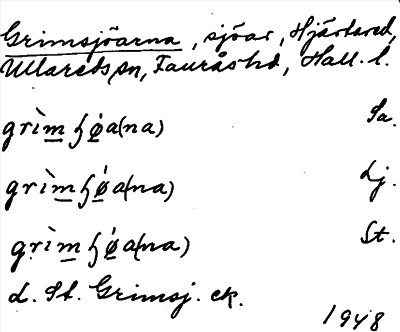 Grimsjöarna, sjöar, Hjärtared,
Ullareds sn, Fauråshd, Hall. l.
grìm̲ ɧǿ̲a(na) Sa.
grìm̲ ɧǿ̲a(na) Lj.
grìm̲ ɧǿ̲a(na) St.
d. St. Grimsj. ek.
1948